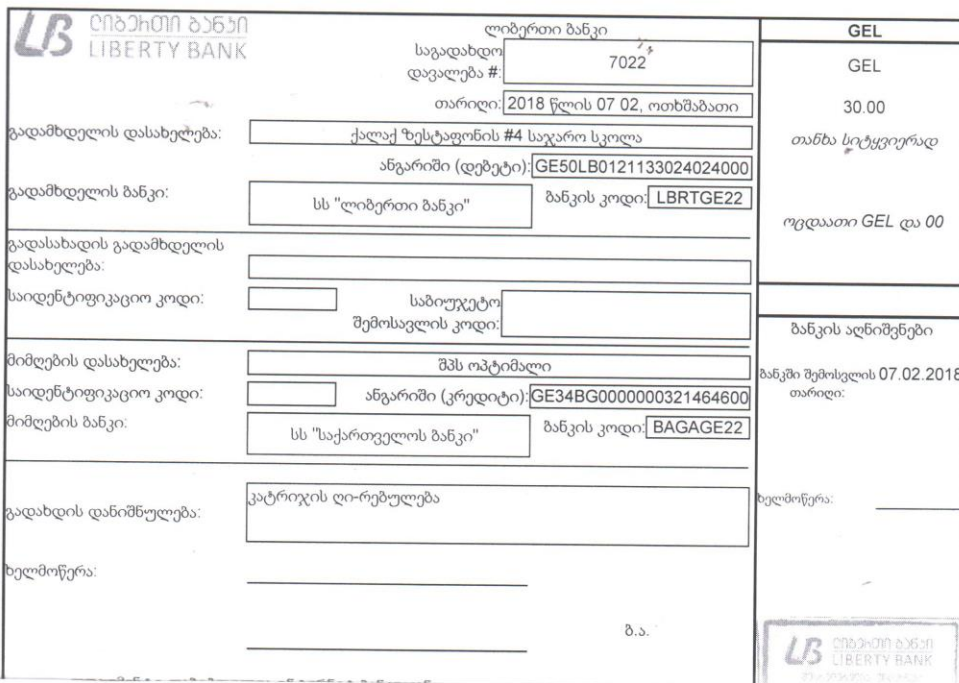 ლიბერთი ბანკი
LIBERTY BANK
ლიბერთი ბანკი
საგადახდო
დავალება #:
7022
თარიღი: 2018 წლის 07 02, ოთხშაბათი
გადამხდელის დასახელება: ქალაქ ზესტაფონის #4 საჯარო სკოლა
ანგარიში (დებეტი): GE50LB0121133024024000
გადამხდელის ბანკი: სს "ლიბერთი ბანკი" ბანკის კოდი: LBRTGE22
გადასახადის გადამხდელის
დასახელება:
საიდენტიფიკაციო კოდი:
საბიუჯეტო
შემოსავლის კოდი:
მიმღების დასახელება: შპს ოპტიმალი
საიდენტიფიკაციო კოდი: ანგარიში (კრედიტი): GE34BG0000000321464600
მიმღების ბანკი: სს "საქართველოს ბანკი" ბანკის კოდი: BAGAGE22
გადახდის დანიშნულება: კატრიჯის ღი-რებულება
ხელმოწერა:
ბ.ა.
GEL
GEL
30.00
თანხა სიტყვიერად
ოცდაათი GEL და 00
ბანკის აღნიშვნები
ბანკში შემოსვლის 07.02.2018
თარიღი:
ხელმოწერა:
ლიბერთი ბანკი
LIBERTY BANK